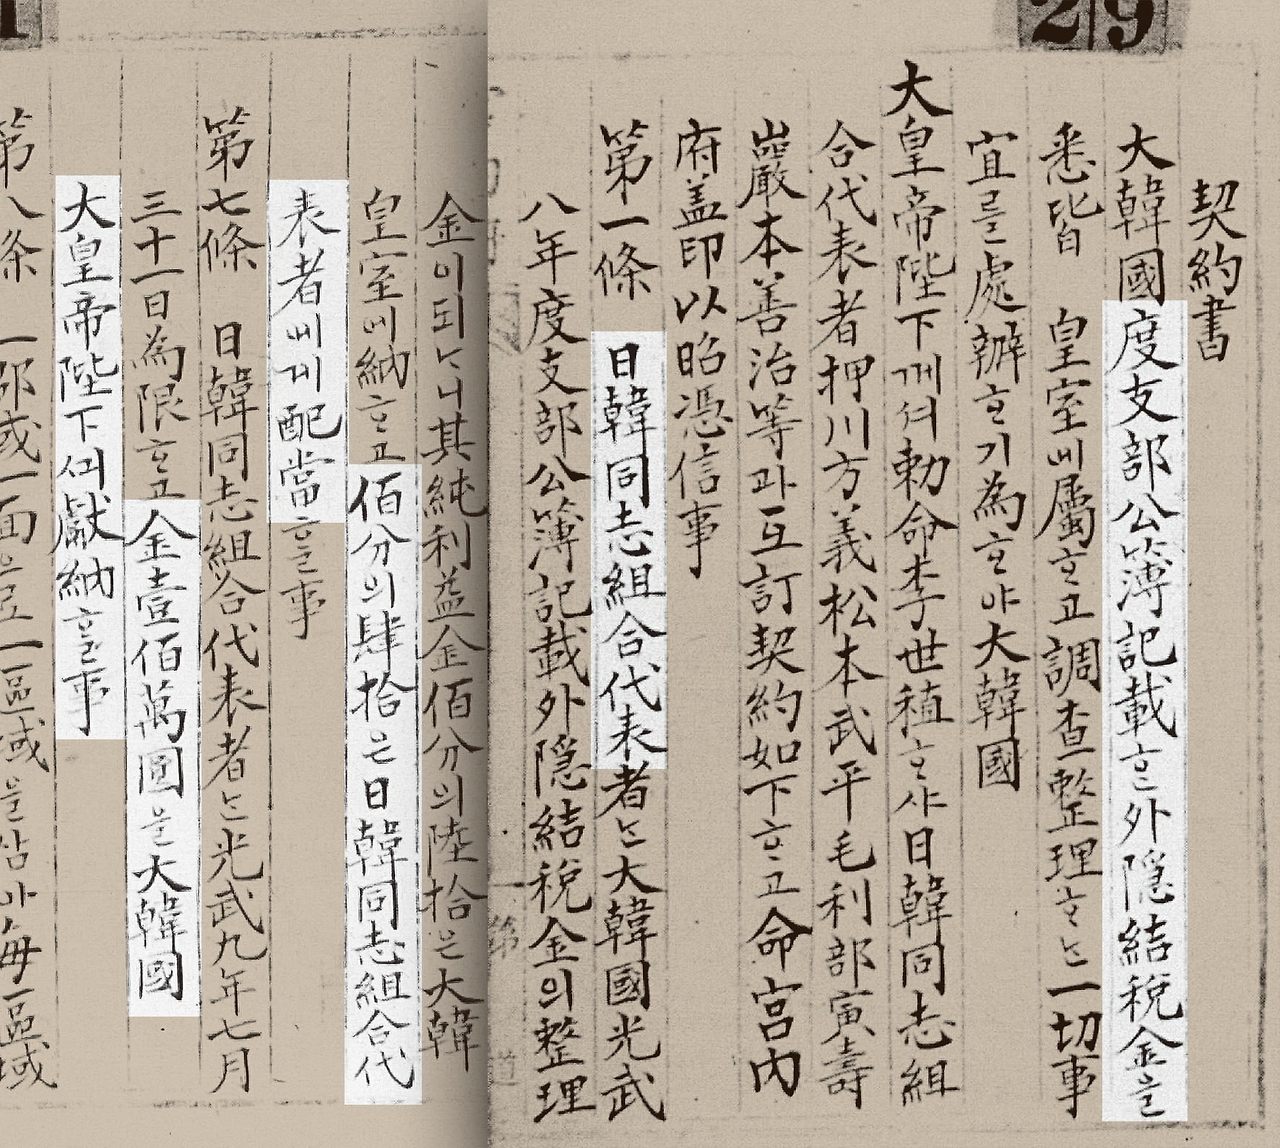 29
契約書
大韓國度支部公簿記載ᄒᆞᆫ外隠結稅金을
悉皆 皇室에屬ᄒᆞ고調查整理ᄒᆞᄂᆞᆫ一切事
宜를處辦ᄒᆞ기為ᄒᆞ야大韓國
大皇帝陛下ᄭᅦ셔勅命李世稙ᄒᆞ샤日韓同志組
合代表者押川方義松本武平毛利部寅壽
巖本善治等과互訂契約如下ᄒᆞ고命宮內
府盖印以昭憑信事
第一條 日韓同志組合代表者ᄂᆞᆫ大韓國光武
八年度支部公簿記載外隠結稅金의整理
金이되ᄂᆞ니其純利益金佰分의陸拾은大韓
皇室에納ᄒᆞ고佰分의肆拾은日韓同志組合代
表者에게配當ᄒᆞᆯ事
第七條 日韓同志組合代表者ᄂᆞᆫ光武九年七月
三十一日為限ᄒᆞ고金壹佰萬圓을大韓國
大皇帝陛下ᄭᅴ獻納ᄒᆞᆯ事
第八条 一部或一面으로一區域을삼아每一區域